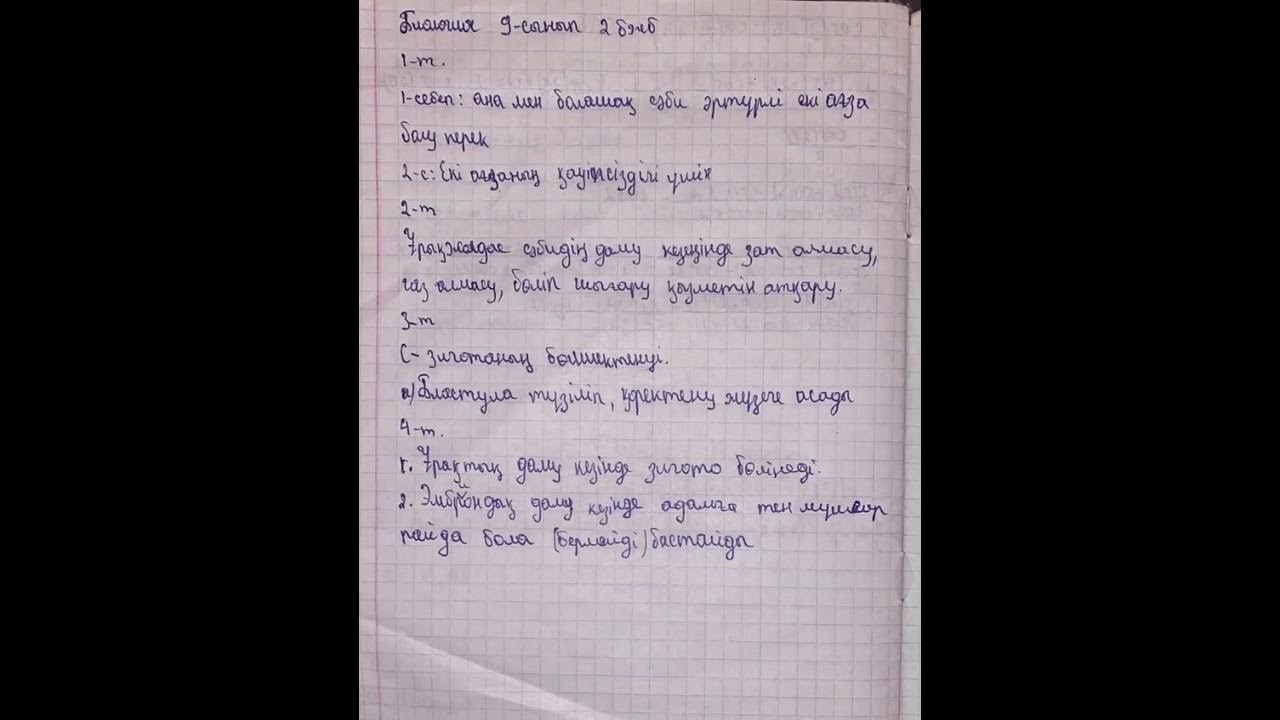 Биология 9-сынып 2 бөлб
1-т.
1-себеп: ана мен болашақ сәби әртүрлі екі ағза
болу керек
2-с: Екі ағзаның қауіпсіздігі үшін
2-т
Ұрықжолдас сәбидің даму кезеңінде зат алмасу,
газ алмасу, бөліп шығару қызметін атқару.
3-т
С- зиготаның бөлшектенуі.
а) Бластула түзіліп, қоректену жүзеге асады
4-т.
1. Ұрақтың даму кезінде зигото бөлінеді.
2. Эмбриондық даму кезінде адамға тен мүшелер
пайда бола (бермейді) бастайды